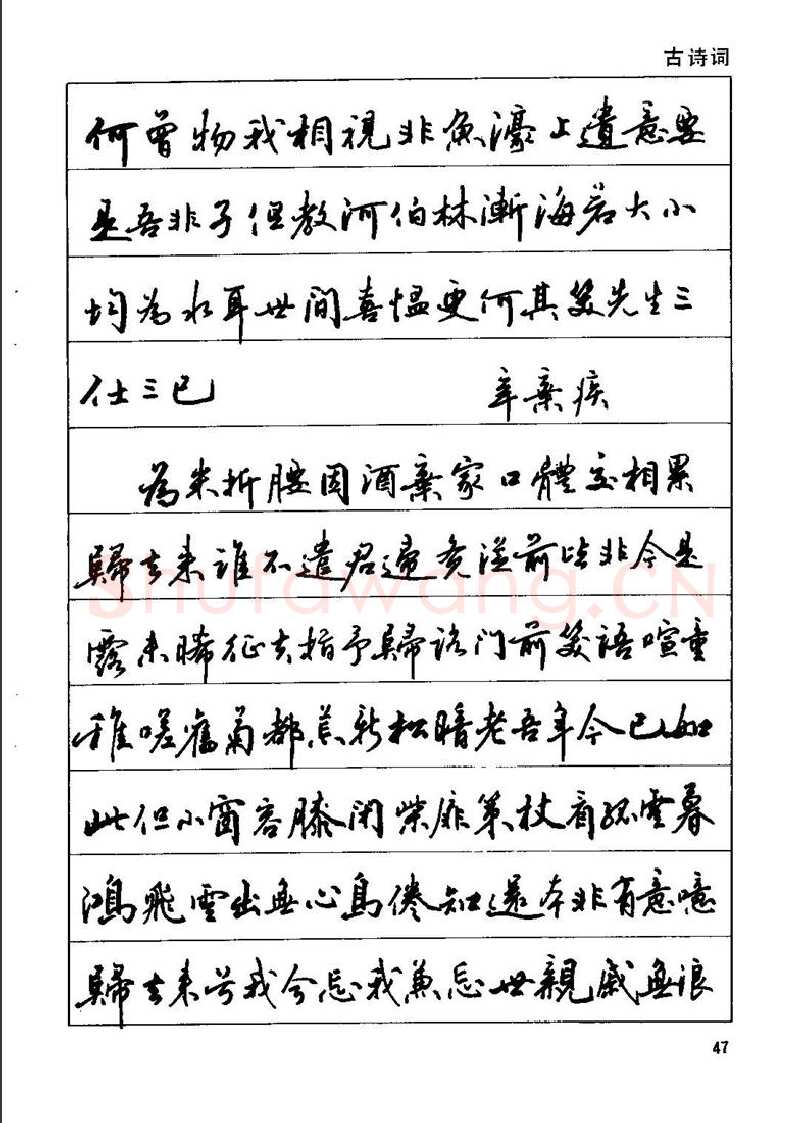 古诗词
何曾物我相視非魚濠上遺意要
是吾非子但教河伯休慚海若大小
均為水耳世間喜愠更何其笑先生三
仕三已 辛棄疾
為米折腰因酒棄家口體交相累
歸去來誰不遣君歸覺從前皆非今是
露未晞征夫指予歸路門前笑語喧童
稚嗟舊菊都荒新松暗老吾年今已如
此但小窗容膝閉柴扉策杖看孤雲暮
鴻飛雲出無心鳥倦知還本非有意噫
歸去來兮我今忘我兼忘世親戚無浪
47
shufawang.CN